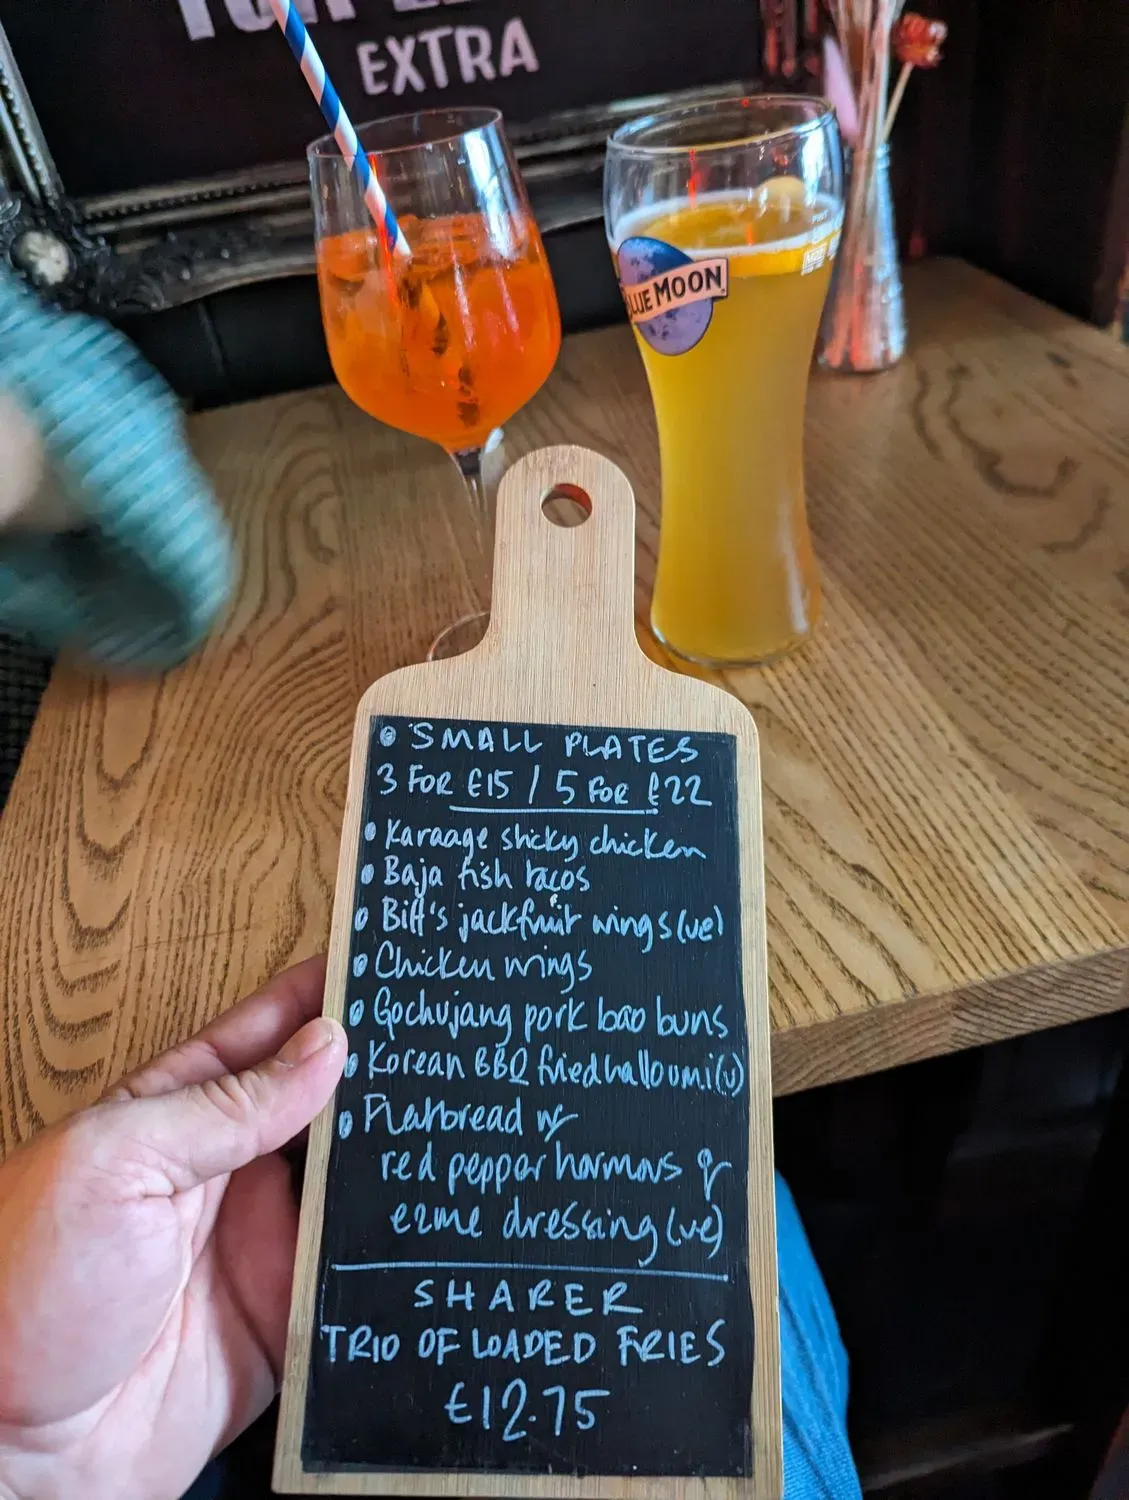 EXTRA
BLUE MOON
PINT
• SMALL PLATES
3 FOR £15 / 5 FOR £22
• Karaage sticky chicken
• Baja fish tacos
• Biff's jackfruit wings (ve)
• Chicken wings
• Gochujang pork bao buns
• Korean BBQ fried halloumi (v)
• Flatbread w/
red pepper hommus &
ezme dressing (ve)
SHARER
TRIO OF LOADED FRIES
£12.75